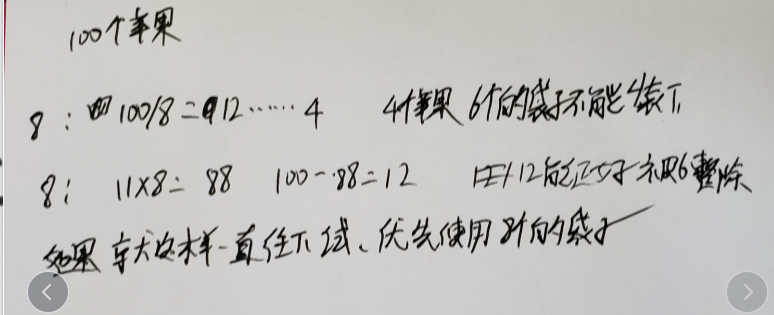 100个苹果
8: 100/8=12……4 4个苹果 6个的袋子不能装下
8: 11x8=88 100-88=12 12能正好被6整除
如果 就这样一直往下试、优先使用8个的袋子